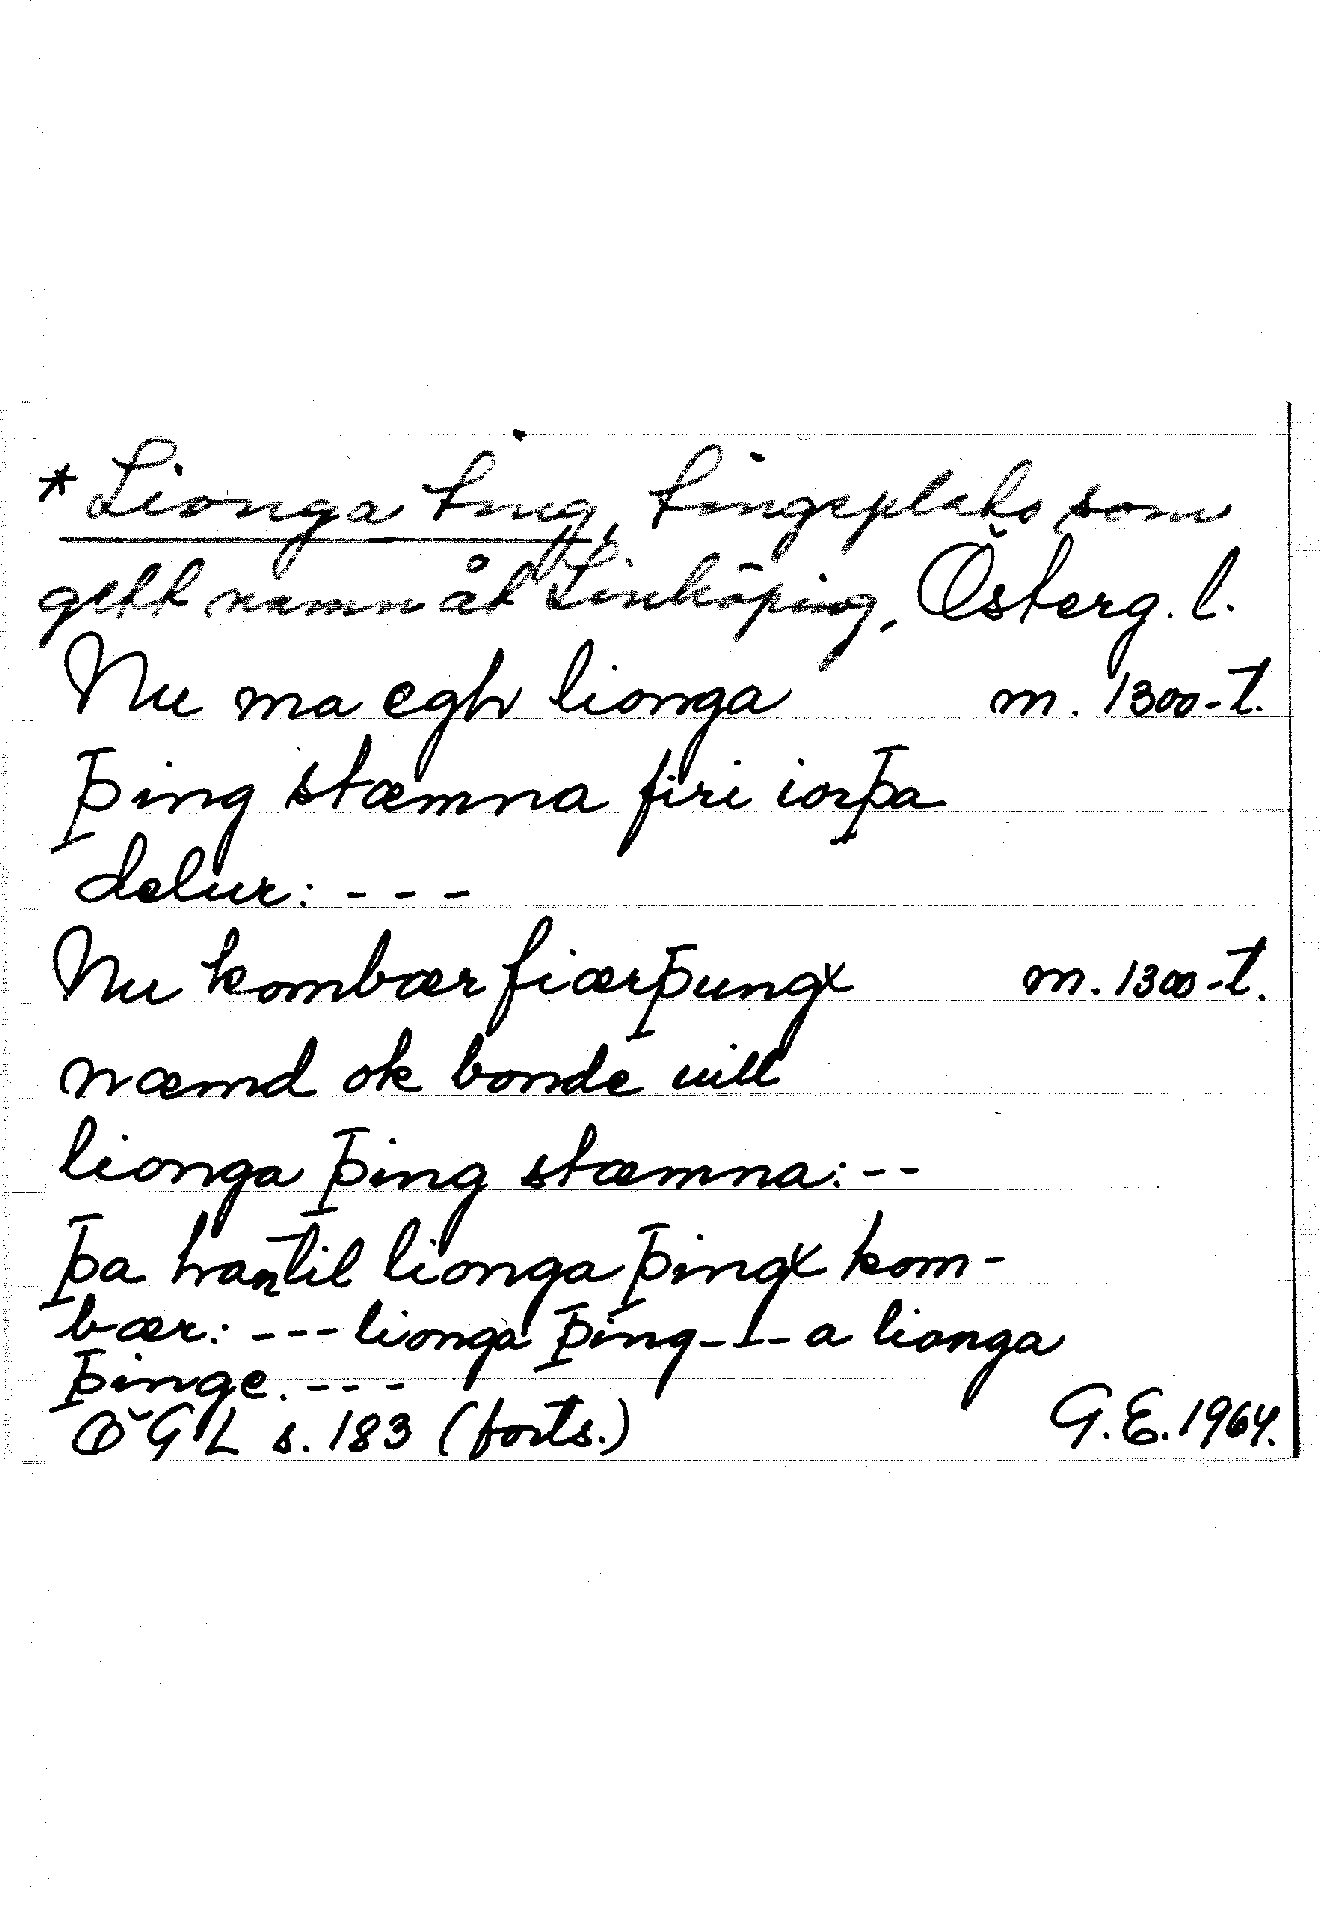 * Lionga ting, tingsplats som
gett namn åt Linköping, Österg. l.
Nu ma egh lionga m. 1300-t.
þing stæmna firi iorþa
delur: - - -
Nu kombær fiærþungx m. 1300-t.
næmd ok bonde uill
lionga þing stæmna: - -
þa han til lionga þingx kom-
bær: - - - lionga þing - - - a lionga
þinge. - - -
ÖGL s. 183 (forts.) G.E. 1964.